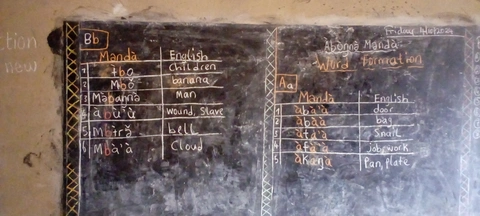 tion
new
Bb
Mandà English
1 tbo Children
2 Mbǒ banana
3 Màbannìà Man
4 àbù'ù wound, Slave
5 Mbìrǎ bell
6 Mbà'à Cloud
Friday
Abǝnnǝ Mandà
Word Formation
Aa
Mandà English
1 àbà'à door
2 àbàà bag
3 àtá'à Snail
4 àfà'à job, work
5 àkaŋa Pan, plate